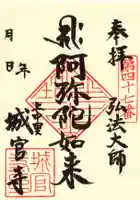 第四十七番
奉拝
弘法大師
阿弥陀如来
上中里
城官寺
年
月日